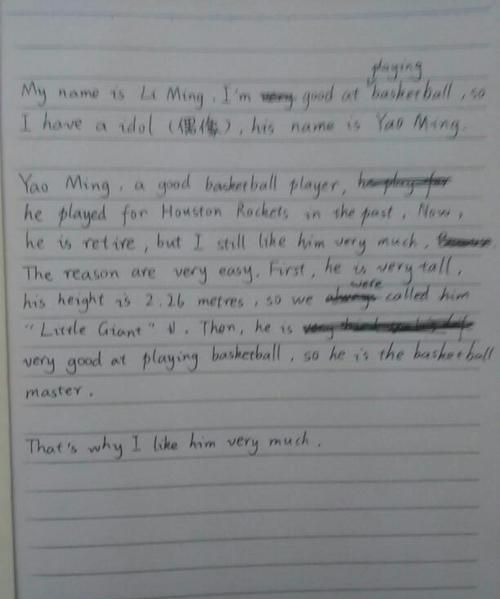 playing
My name is Li Ming. I'm very good at basketball, so
I have a idol (偶像), his name is Yao Ming.
Yao Ming, a good basketball player, he play for
he played for Houston Rockets in the past. Now,
he is retire, but I still like him very much. Because
The reason are very easy. First, he is very tall,
were
his height is 2.26 metres, so we always called him
"Little Giant". Then, he is very
very good at playing basketball, so he is the basketball
master.
That's why I like him very much.